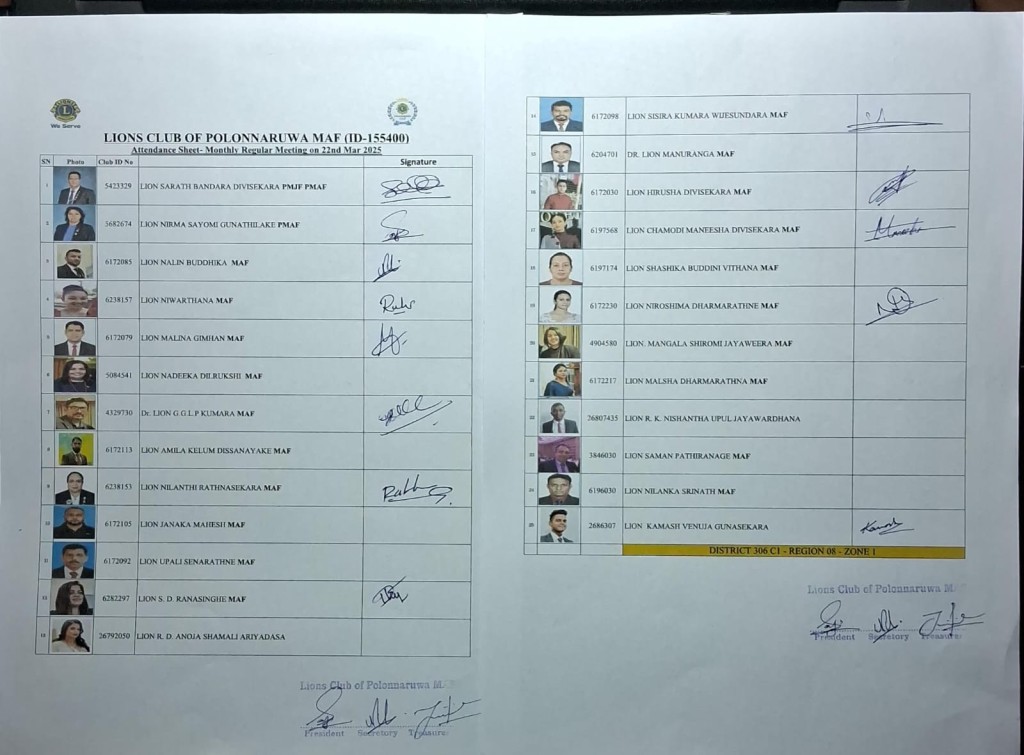 We Serve
LIONS CLUB OF POLONNARUWA MAF (ID-155400)
Attendance Sheet- Monthly Regular Meeting on 22nd Mar 2025
SN Photo Club ID No Signature
1 5423329 LION SARATH BANDARA DIVISEKARA PMJF PMAF
2 5682674 LION NIRMA SAYOMI GUNATHILAKE PMAF
3 6172085 LION NALIN BUDDHIKA MAF
4 6238157 LION NIWARTHANA MAF
5 6172079 LION MALINA GIMHAN MAF
6 5084541 LION NADEEKA DILRUKSHI MAF
7 4329730 Dr. LION G.G.L.P KUMARA MAF
8 6172113 LION AMILA KELUM DISSANAYAKE MAF
9 6238153 LION NILANTHI RATHNASEKARA MAF
10 6172105 LION JANAKA MAHESH MAF
11 6172092 LION UPALI SENARATHNE MAF
12 6282297 LION S. D. RANASINGHE MAF
13 26792050 LION R. D. ANOJA SHAMALI ARIYADASA
Lions Club of Polonnaruwa M
President Secretory Treasurer
14 6172098 LION SISIRA KUMARA WIJESUNDARA MAF
15 6204701 DR. LION MANURANGA MAF
16 6172030 LION HIRUSHA DIVISEKARA MAF
17 6197568 LION CHAMODI MANEESHA DIVISEKARA MAF
18 6197174 LION SHASHIKA BUDDINI VITHANA MAF
19 6172230 LION NIROSHIMA DHARMARATHNE MAF
20 4904580 LION. MANGALA SHIROMI JAYAWEERA MAF
21 6172217 LION MALSHA DHARMARATHNA MAF
22 26807435 LION R. K. NISHANTHA UPUL JAYAWARDHANA
23 3846030 LION SAMAN PATHIRANAGE MAF
24 6196030 LION NILANKA SRINATH MAF
25 2686307 LION KAMASH VENUJA GUNASEKARA
DISTRICT 306 C1 - REGION 08 - ZONE 1
Lions Club of Polonnaruwa M
President Secretory Treasurer